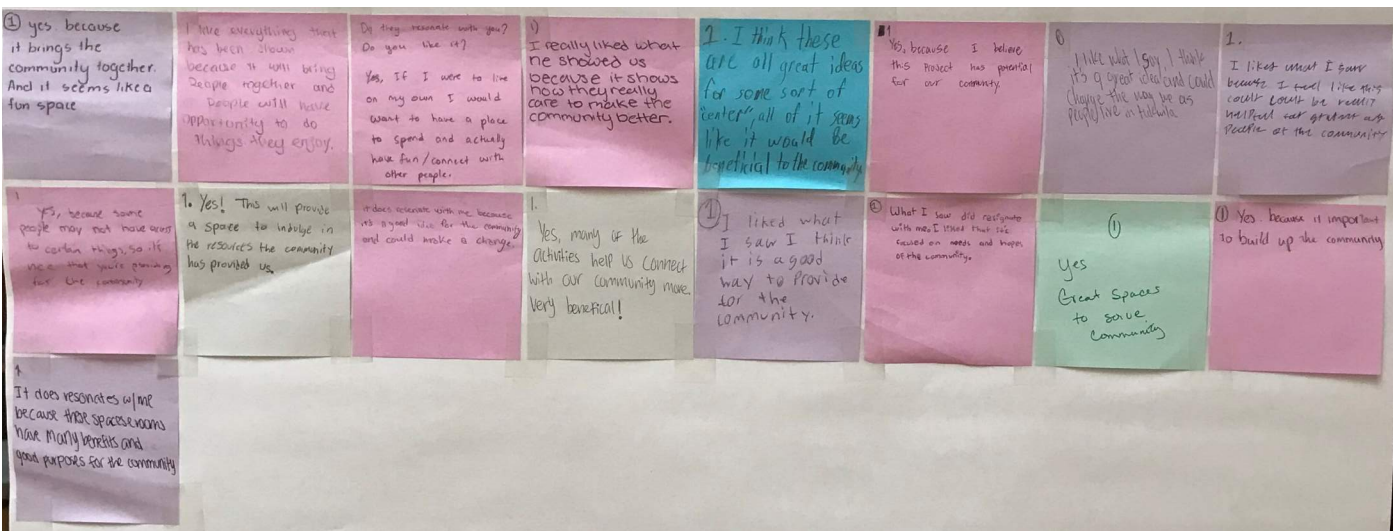 ① yes because
it brings the
community together.
And it seems like a
fun space
I love everything that
has been shown
because it will bring
People together and
People will have
opportunity to do
things they enjoy.
Do they resonate with you?
Do you like it?
Yes, If I were to live
on my own I would
want to have a place
to spend and actually
have fun/connect with
other people.
1)
I really liked what
he showed us
because it shows
how they really
care to make the
community better.
1. I think these
are all great ideas
for some sort of
"center" all of it seems
like it would be
beneficial to the community
1
Yes, because I believe
this Project has potential
for our community.
I like what I saw, I think
it's a great idea and could
change the way we as
people live in
1.
I liked what I saw
because I feel like this
could be really
helpful
People of the community
1
Yes, because some
people may not have access
to certain things, so it's
nice that you're providing
for the community
1. Yes! This will provide
a space to indulge in
the resources the community
has provided us.
it does resonate with me because
it's a good idea for the community
and could make a change.
1.
Yes, many of the
activities help us connect
with our community more.
Very benefical!
① I liked what
I saw I think
it is a good
way to Provide
for the
community.
What I saw did resignate
with me. I liked that
focused on needs and hopes
of the community.
①
Yes
Great Spaces
to serve
Community
① Yes because it important
to build up the community
1
It does resonates w/me
because these spaces rooms
have many benefits and
good purposes for the community